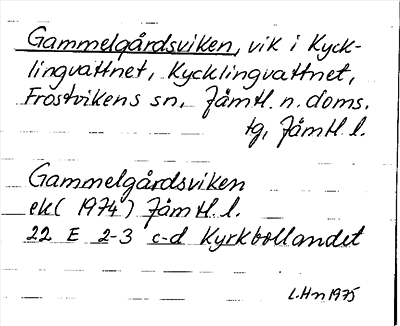 Gammelgårdsviken, vik i Kyck-
lingvattnet, Kycklingvattnet,
Frostvikens sn, Jämtl. n. doms.
tg, Jämtl. l.
Gammelgårdsviken
ek (1974) Jämtl. l.
22 E 2-3 c-d Kyrkbollandet
L.Hn 1975